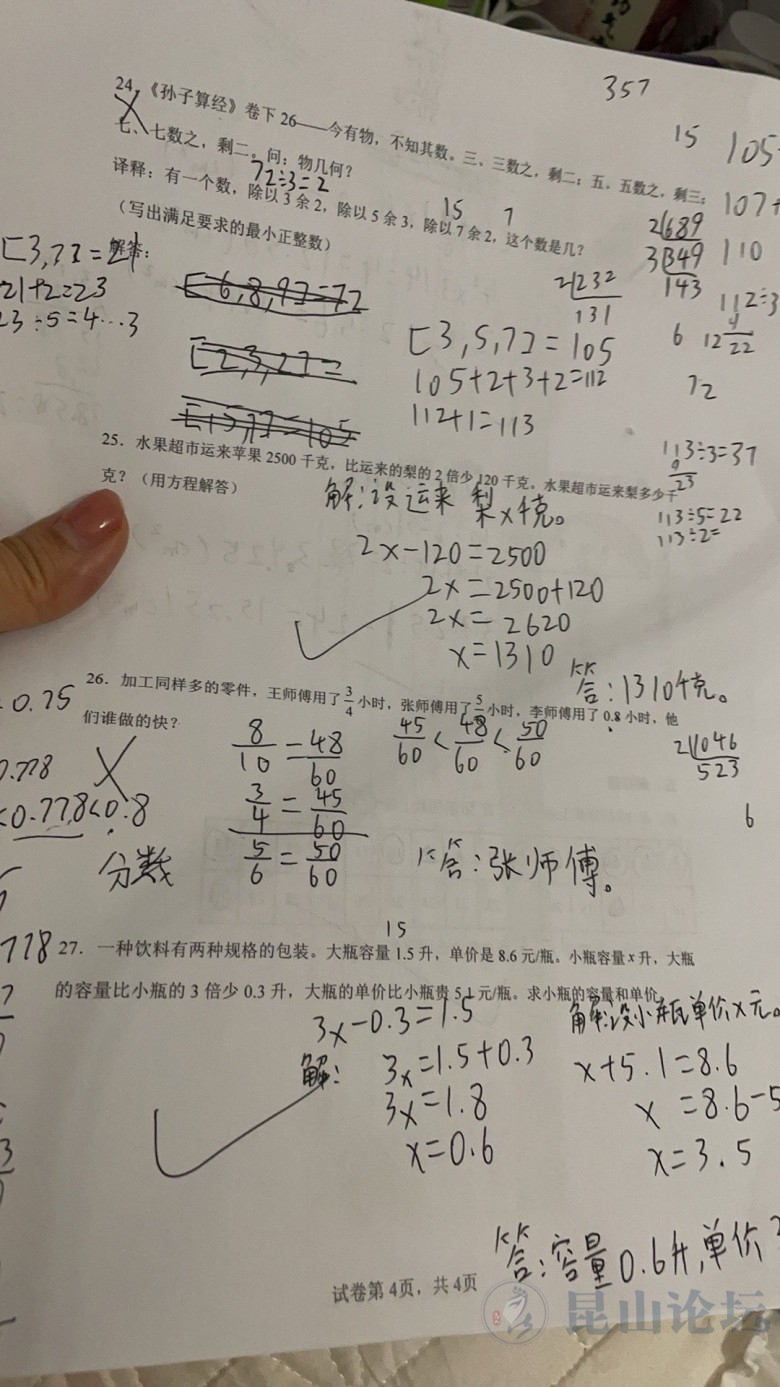 357
15
105
24.《孙子算经》卷下 26——今有物，不知其数。三、三数之，剩二；五、五数之，剩三；
七、七数之，剩二。问：物几何？
72÷3=2
107+
译释：有一个数，除以 3 余 2，除以 5 余 3，除以 7 余 2，这个数是几？
15 7
（写出满足要求的最小正整数）
解答：
[3,7]=21
21+2=23
23÷5=4…3
[6,8,9]=72
[2,3,2]=
[3,5,7]=105
105+2+3+2=112
112+1=113
2 232
131
2 689
3 349
143
110
112÷3
6
12
22
72
113÷3=37
23
113÷5=22
113÷2=
25．水果超市运来苹果 2500 千克，比运来的梨的 2 倍少 120 千克，水果超市运来梨多少千
克？（用方程解答）
解：设运来梨x千克。
2x-120=2500
2x=2500+120
2x=2620
x=1310
答：1310千克。
26．加工同样多的零件，王师傅用了 3/4 小时，张师傅用了 5/6 小时，李师傅用了 0.8 小时，他
们谁做的快？
0.75
0.778
<0.778<0.8
分数
8/10=48/60
3/4=45/60
5/6=50/60
45/60<48/60<50/60
2 1046
523
6
答：张师傅。
778
15
27．一种饮料有两种规格的包装。大瓶容量 1.5 升，单价是 8.6 元/瓶。小瓶容量 x 升，大瓶
的容量比小瓶的 3 倍少 0.3 升，大瓶的单价比小瓶贵 5.1 元/瓶。求小瓶的容量和单价。
3x-0.3=1.5
解：
3x=1.5+0.3
3x=1.8
x=0.6
解：设小瓶单价x元。
x+5.1=8.6
x=8.6-5
x=3.5
答：容量0.6升，单价
试卷第 4页，共 4页
昆山论坛